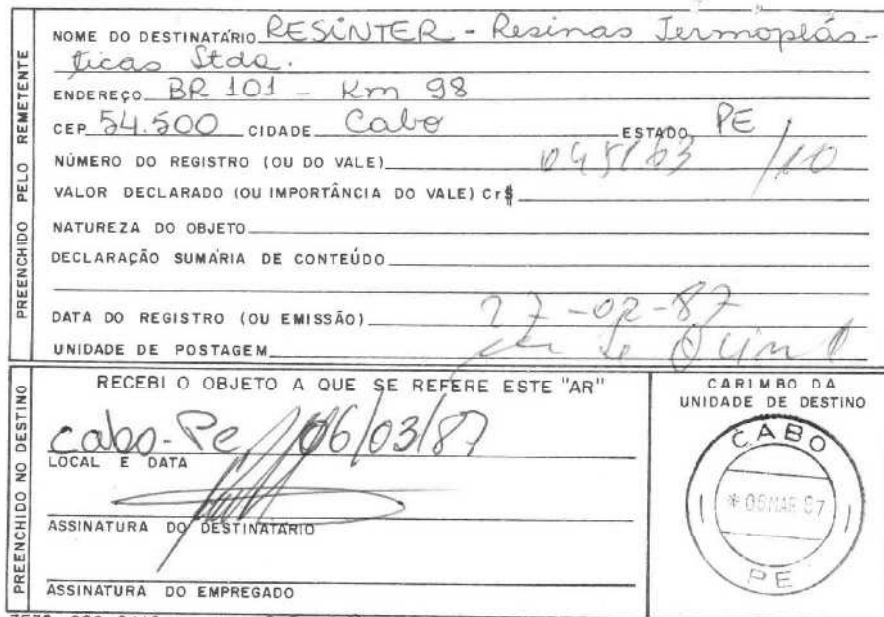 NOME DO DESTINATÁRIO RESINTER - Resinas Termoplás-
ticas Ltda.
ENDEREÇO BR 101 - Km 98
CEP 54.500 CIDADE Cabo ESTADO PE
NÚMERO DO REGISTRO (OU DO VALE) /10
VALOR DECLARADO (OU IMPORTÂNCIA DO VALE) Cr$
NATUREZA DO OBJETO
DECLARAÇÃO SUMÁRIA DE CONTEÚDO
DATA DO REGISTRO (OU EMISSÃO) 27-02-87
UNIDADE DE POSTAGEM
PREENCHIDO PELO REMETENTE
RECEBI O OBJETO A QUE SE REFERE ESTE "AR"
cabo-Pe 06/03/87
LOCAL E DATA
ASSINATURA DO DESTINATÁRIO
ASSINATURA DO EMPREGADO
PREENCHIDO NO DESTINO
CARIMBO DA
UNIDADE DE DESTINO
CABO
MAR 87
PE